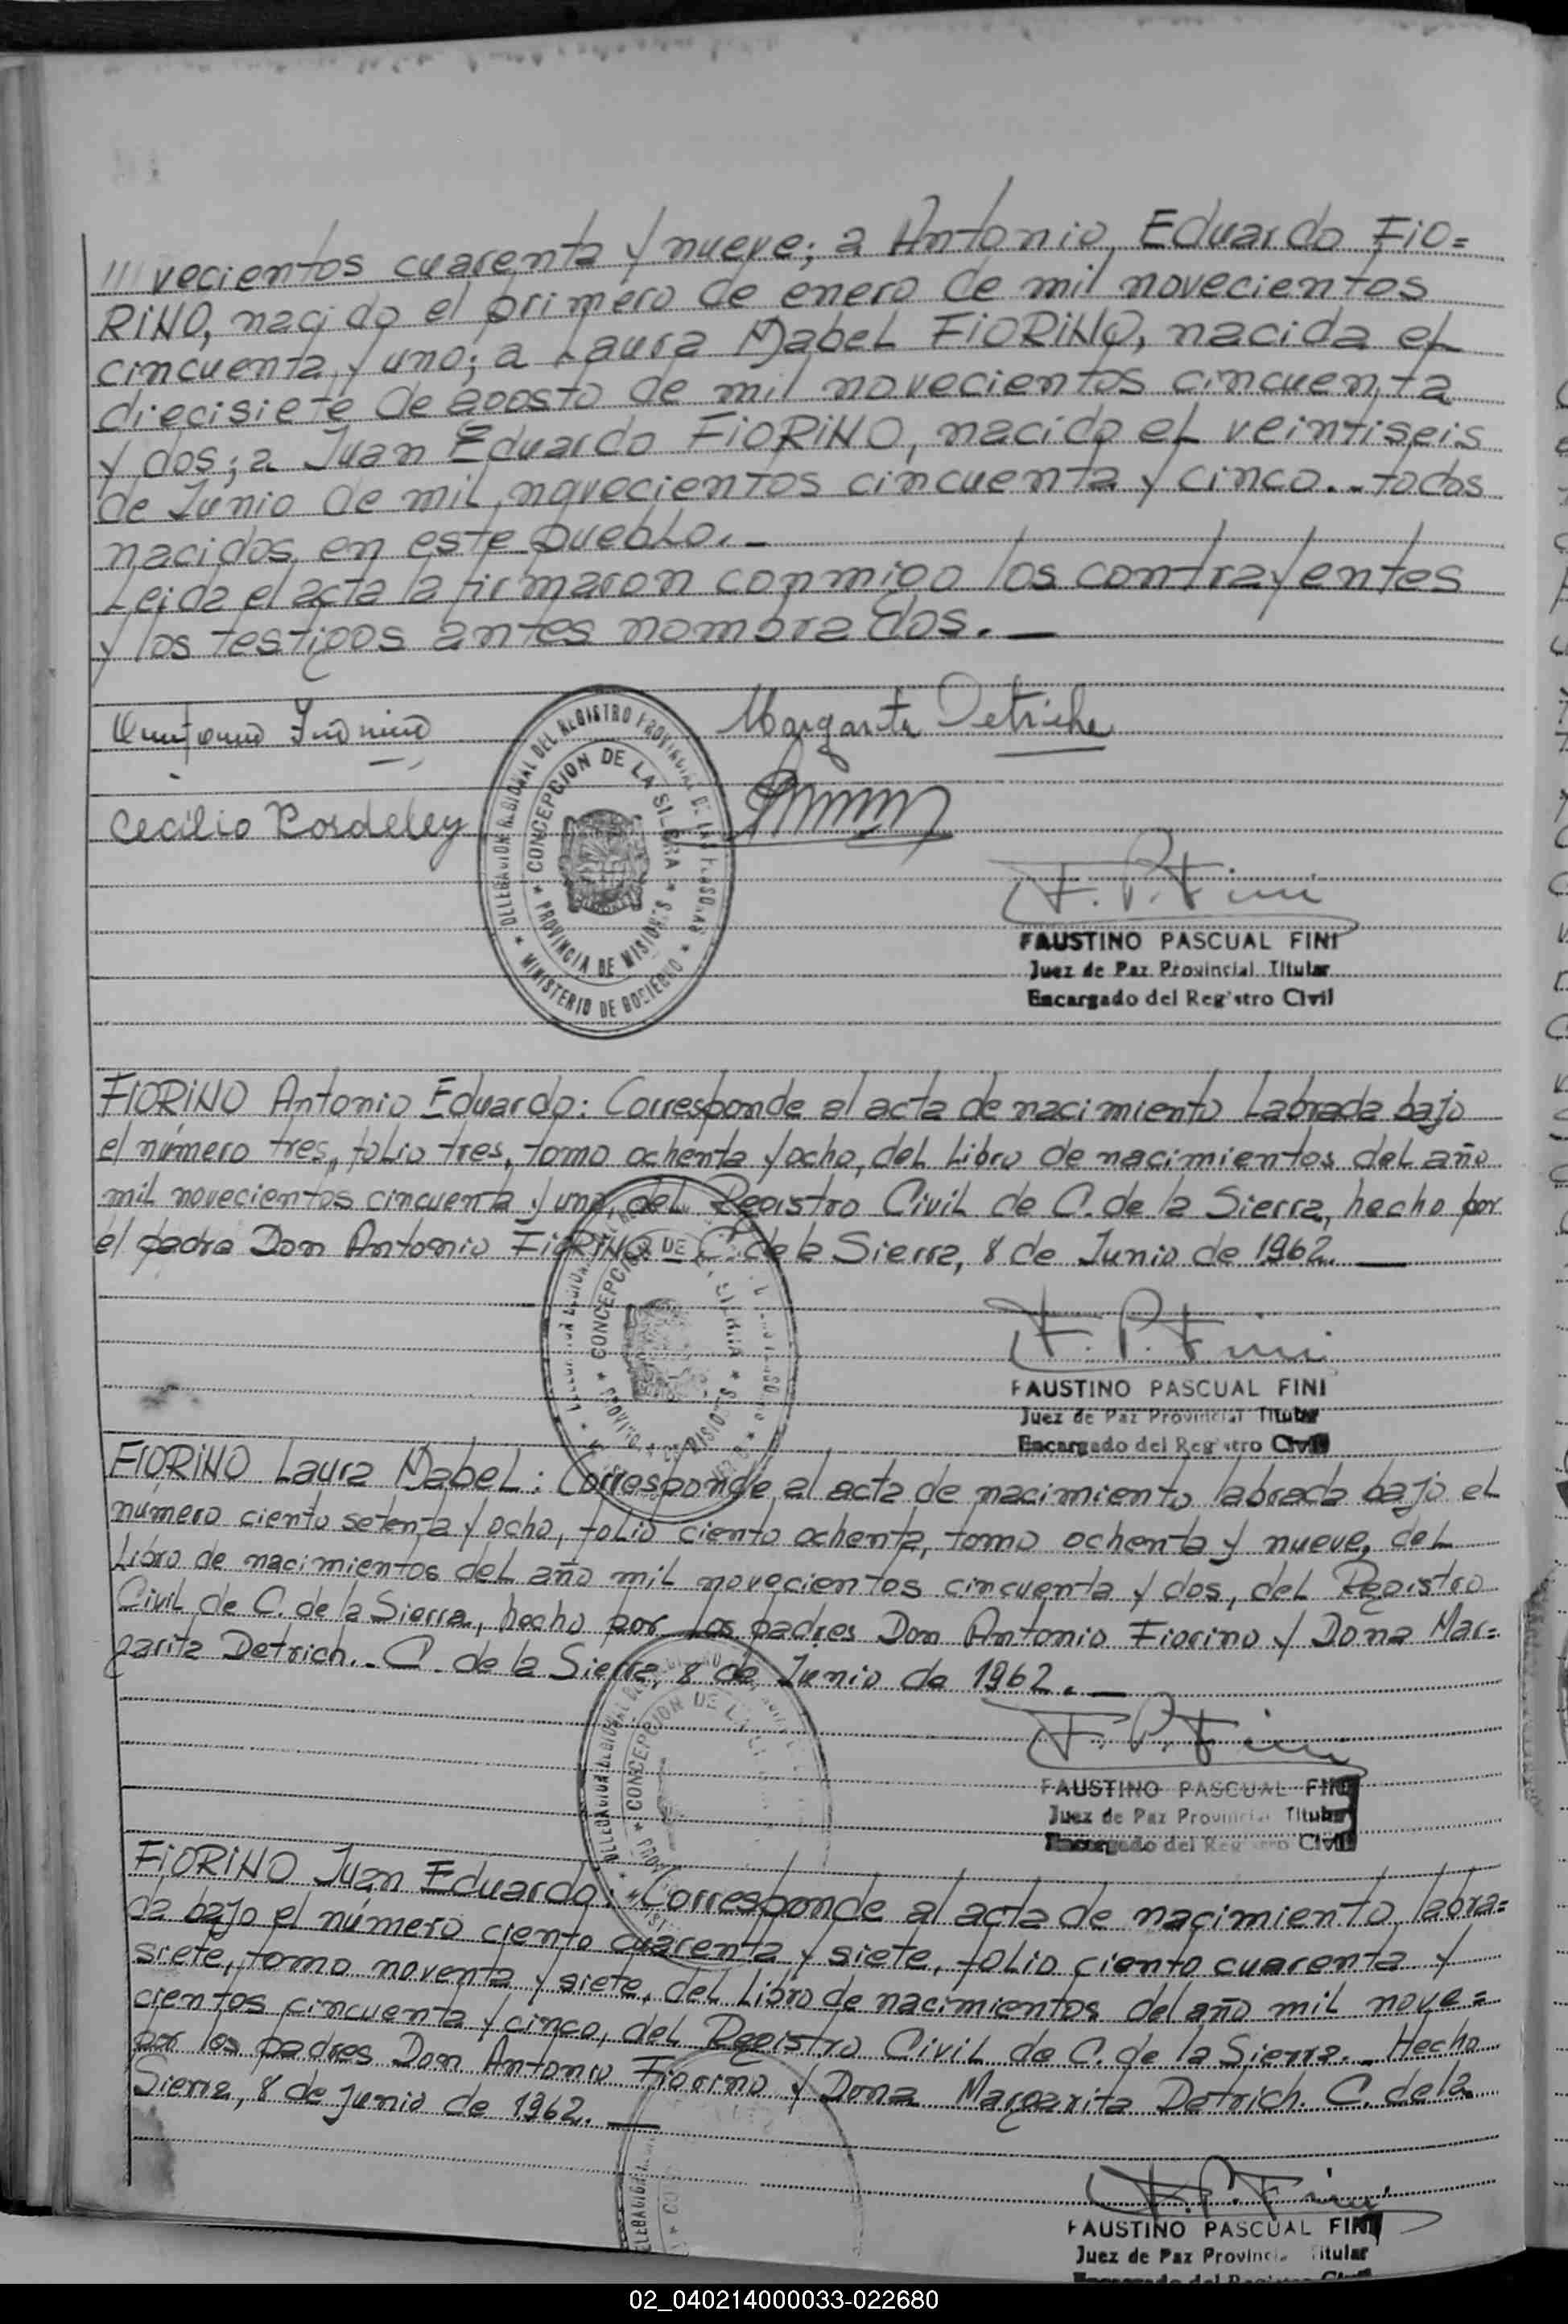 /// vecientos cuarenta y nueve; a Antonio Eduardo FIO=
RINO, nacido el primero de enero de mil novecientos
cincuenta y uno; a Laura Mabel FIORINO, nacida el
diecisiete de agosto de mil novecientos cincuenta
y dos; a Juan Eduardo FIORINO, nacido el veintiseis
de Junio de mil novecientos cincuenta y cinco.- todos
nacidos en este pueblo.-
Leida el acta la firmaron conmigo los contrayentes
y los testigos antes nombrados.-
Margarita Detriche
Cecilio Cordeley
DELEGACION REGIONAL DEL REGISTRO PROVINCIAL DE LAS PERSONAS
* MINISTERIO DE GOBIERNO *
CONCEPCION DE LA SIERRA
* PROVINCIA DE MISIONES *
F. P. Fini
FAUSTINO PASCUAL FINI
Juez de Paz Provincial Titular
Encargado del Registro Civil
FIORINO Antonio Eduardo: Corresponde al acta de nacimiento labrada bajo
el número tres, folio tres, tomo ochenta y ocho, del Libro de nacimientos del año
mil novecientos cincuenta y uno, del Registro Civil de C. de la Sierra, hecho por
el padre Don Antonio FIORINO.- C. de la Sierra, 8 de Junio de 1962.-
CONCEPCION DE LA SIERRA
F. P. Fini
FAUSTINO PASCUAL FINI
Juez de Paz Provincial Titular
Encargado del Registro Civil
FIORINO Laura Mabel: Corresponde al acta de nacimiento labrada bajo el
número ciento setenta y ocho, folio ciento ochenta, tomo ochenta y nueve, del
Libro de nacimientos del año mil novecientos cincuenta y dos, del Registro
Civil de C. de la Sierra, hecho por los padres Don Antonio Fiorino y Dona Mar=
garita Detrich.- C. de la Sierra, 8 de Junio de 1962.-
DELEGACION REGIONAL
CONCEPCION DE LA
F. P. Fini
FAUSTINO PASCUAL FINI
Juez de Paz Provincial Titular
Encargado del Registro Civil
FIORINO Juan Eduardo: Corresponde al acta de nacimiento labra=
da bajo el número ciento cuarenta y siete, folio ciento cuarenta y
siete, tomo noventa y siete, del Libro de nacimientos del año mil nove=
cientos cincuenta y cinco, del Registro Civil de C. de la Sierra.- Hecho
por los padres Don Antonio Fiorino y Dona Margarita Detrich. C. de la
Sierra, 8 de junio de 1962.-
F. P. Fini
FAUSTINO PASCUAL FINI
Juez de Paz Provincial Titular
Encargado del Registro Civil
02_040214000033-022680